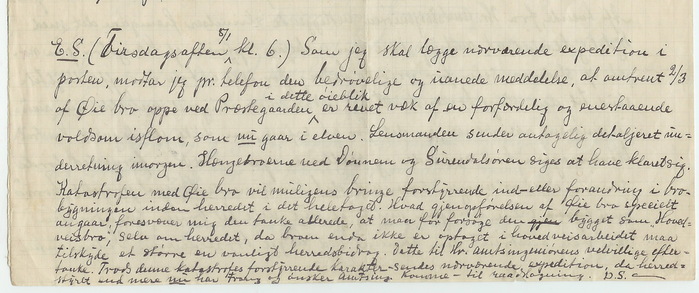 5/1
E.S. (Tirsdagsaften kl. 6.) Som jeg skal lægge nærværende expedition i
posten, modtar jeg pr. telefon den bedrøvelige og uanede meddelelse, at omtrent 2/3
i dette øieblik
af Øie bro oppe ved Præstegaarden, er revet væk af en forfærdelig og enestaaende
voldsom isflom, som nu gaar i elven. Lensmanden sender antagelig detaljeret un-
derretning imorgen. Hængebroerne ved Dønnem og Surendalsøren siges at have klaret sig.
Katastrofen med Øie bro vil muligens bringe forstyrrende ind- eller forandring i bro-
bygningen inden herredet i det heletaget. Hvad gjenopførelsen af Øie bro specielt
angaar, foresvæver mig den tanke allerede, at man før forsøge den bygget som "Hoved-
veisbro", selv om herredet, da broen enda ikke er optaget i hovedveisarbeidet maa
tilskyde et større en vanligt herredsbidrag. Dette til Hr. amtsingeniørens velvillige efter-
tanke. Trods denne katastrofes forstyrrende karakter sendes nærværende expedition, da herred-
styret end mere nu har trang og ønsker amtsing. komme til raadslagning. D.S.